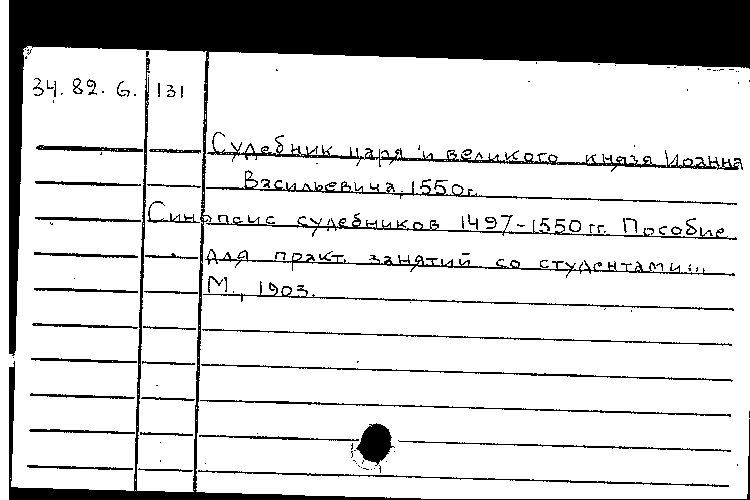 34. 82. 6. 131
Судебник царя и великого князя Иоанна
Васильевича, 1550г.
Синопсис судебников 1497-1550 гг. Пособие
для практ. занятий со студентами...
М., 1903.